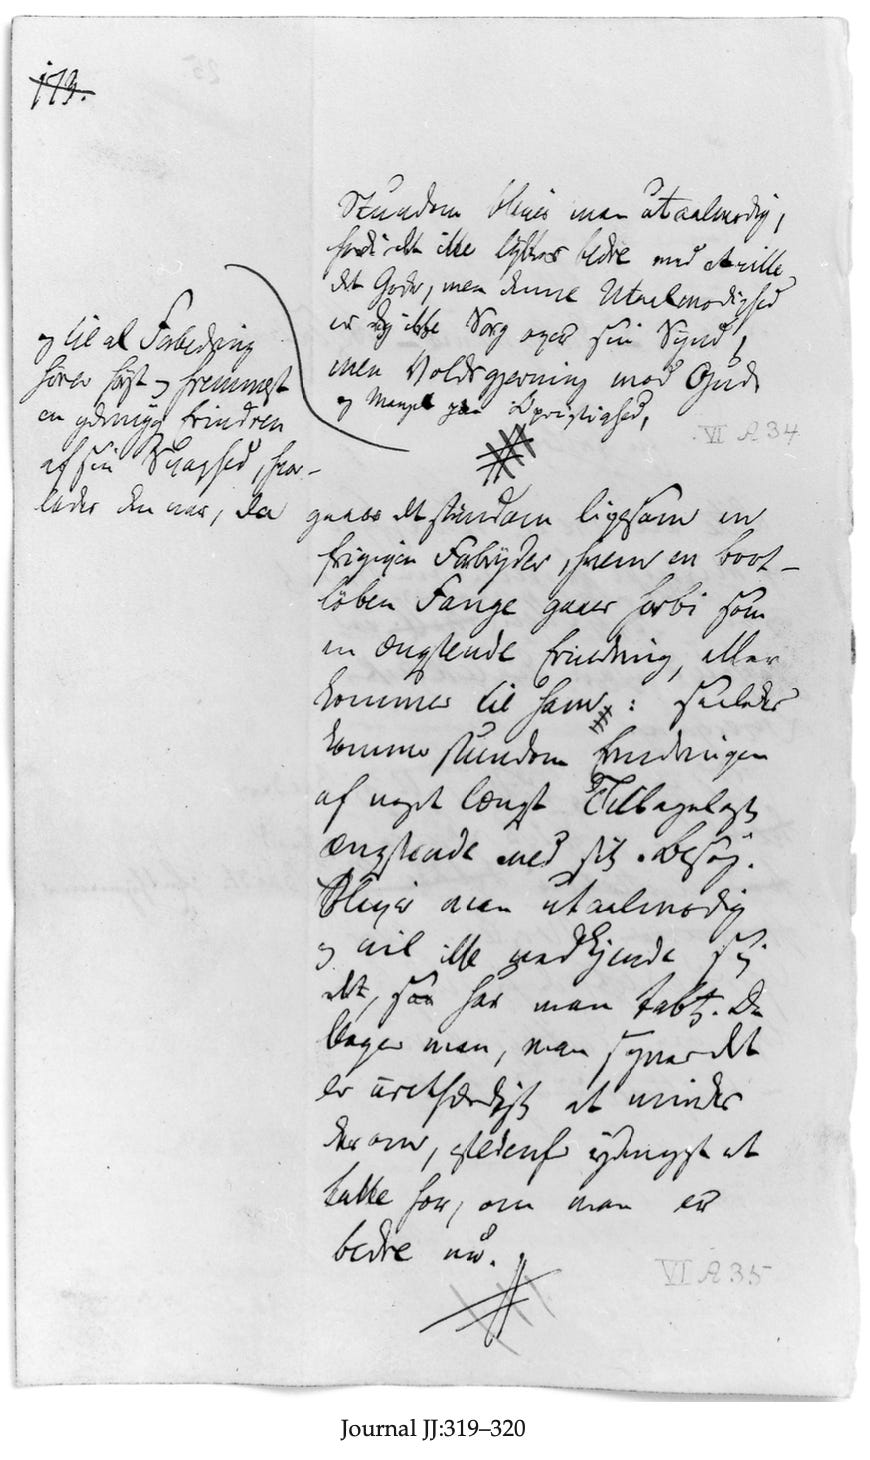 173.
Stundom bliver man utaalmodig,
fordi det ikke lykkes bedre med at ville
det Gode, men denne Utaalmodighed
er ei ikke Sorg over sin Synd,
men Voldsgjerning mod Gud
og Mangel paa Oprigtighed,
VI A 34
og til al Forbedring
hører først og fremmest
en ydmyg Erindren
af sin Svaghed, hvor-
ledes den var, da
gaaer det stundom ligesom en
Forbryder, hvem en bort-
løben Fange gaaer forbi som
en ængstende Erindring, eller
kommer til ham: saaledes
kommer stundom Erindringen
af noget længst Tilbagelagt
ængstende med sit Besøg.
Bliver man utaalmodig
og vil ikke vedkjende sig
det, saa har man tabt. Da
klager man, man synes det
er uretfærdigt at mindes
derom, istedenf ydmygt at
takke for, om man er
bedre nu.
VI A 35
Journal JJ:319–320